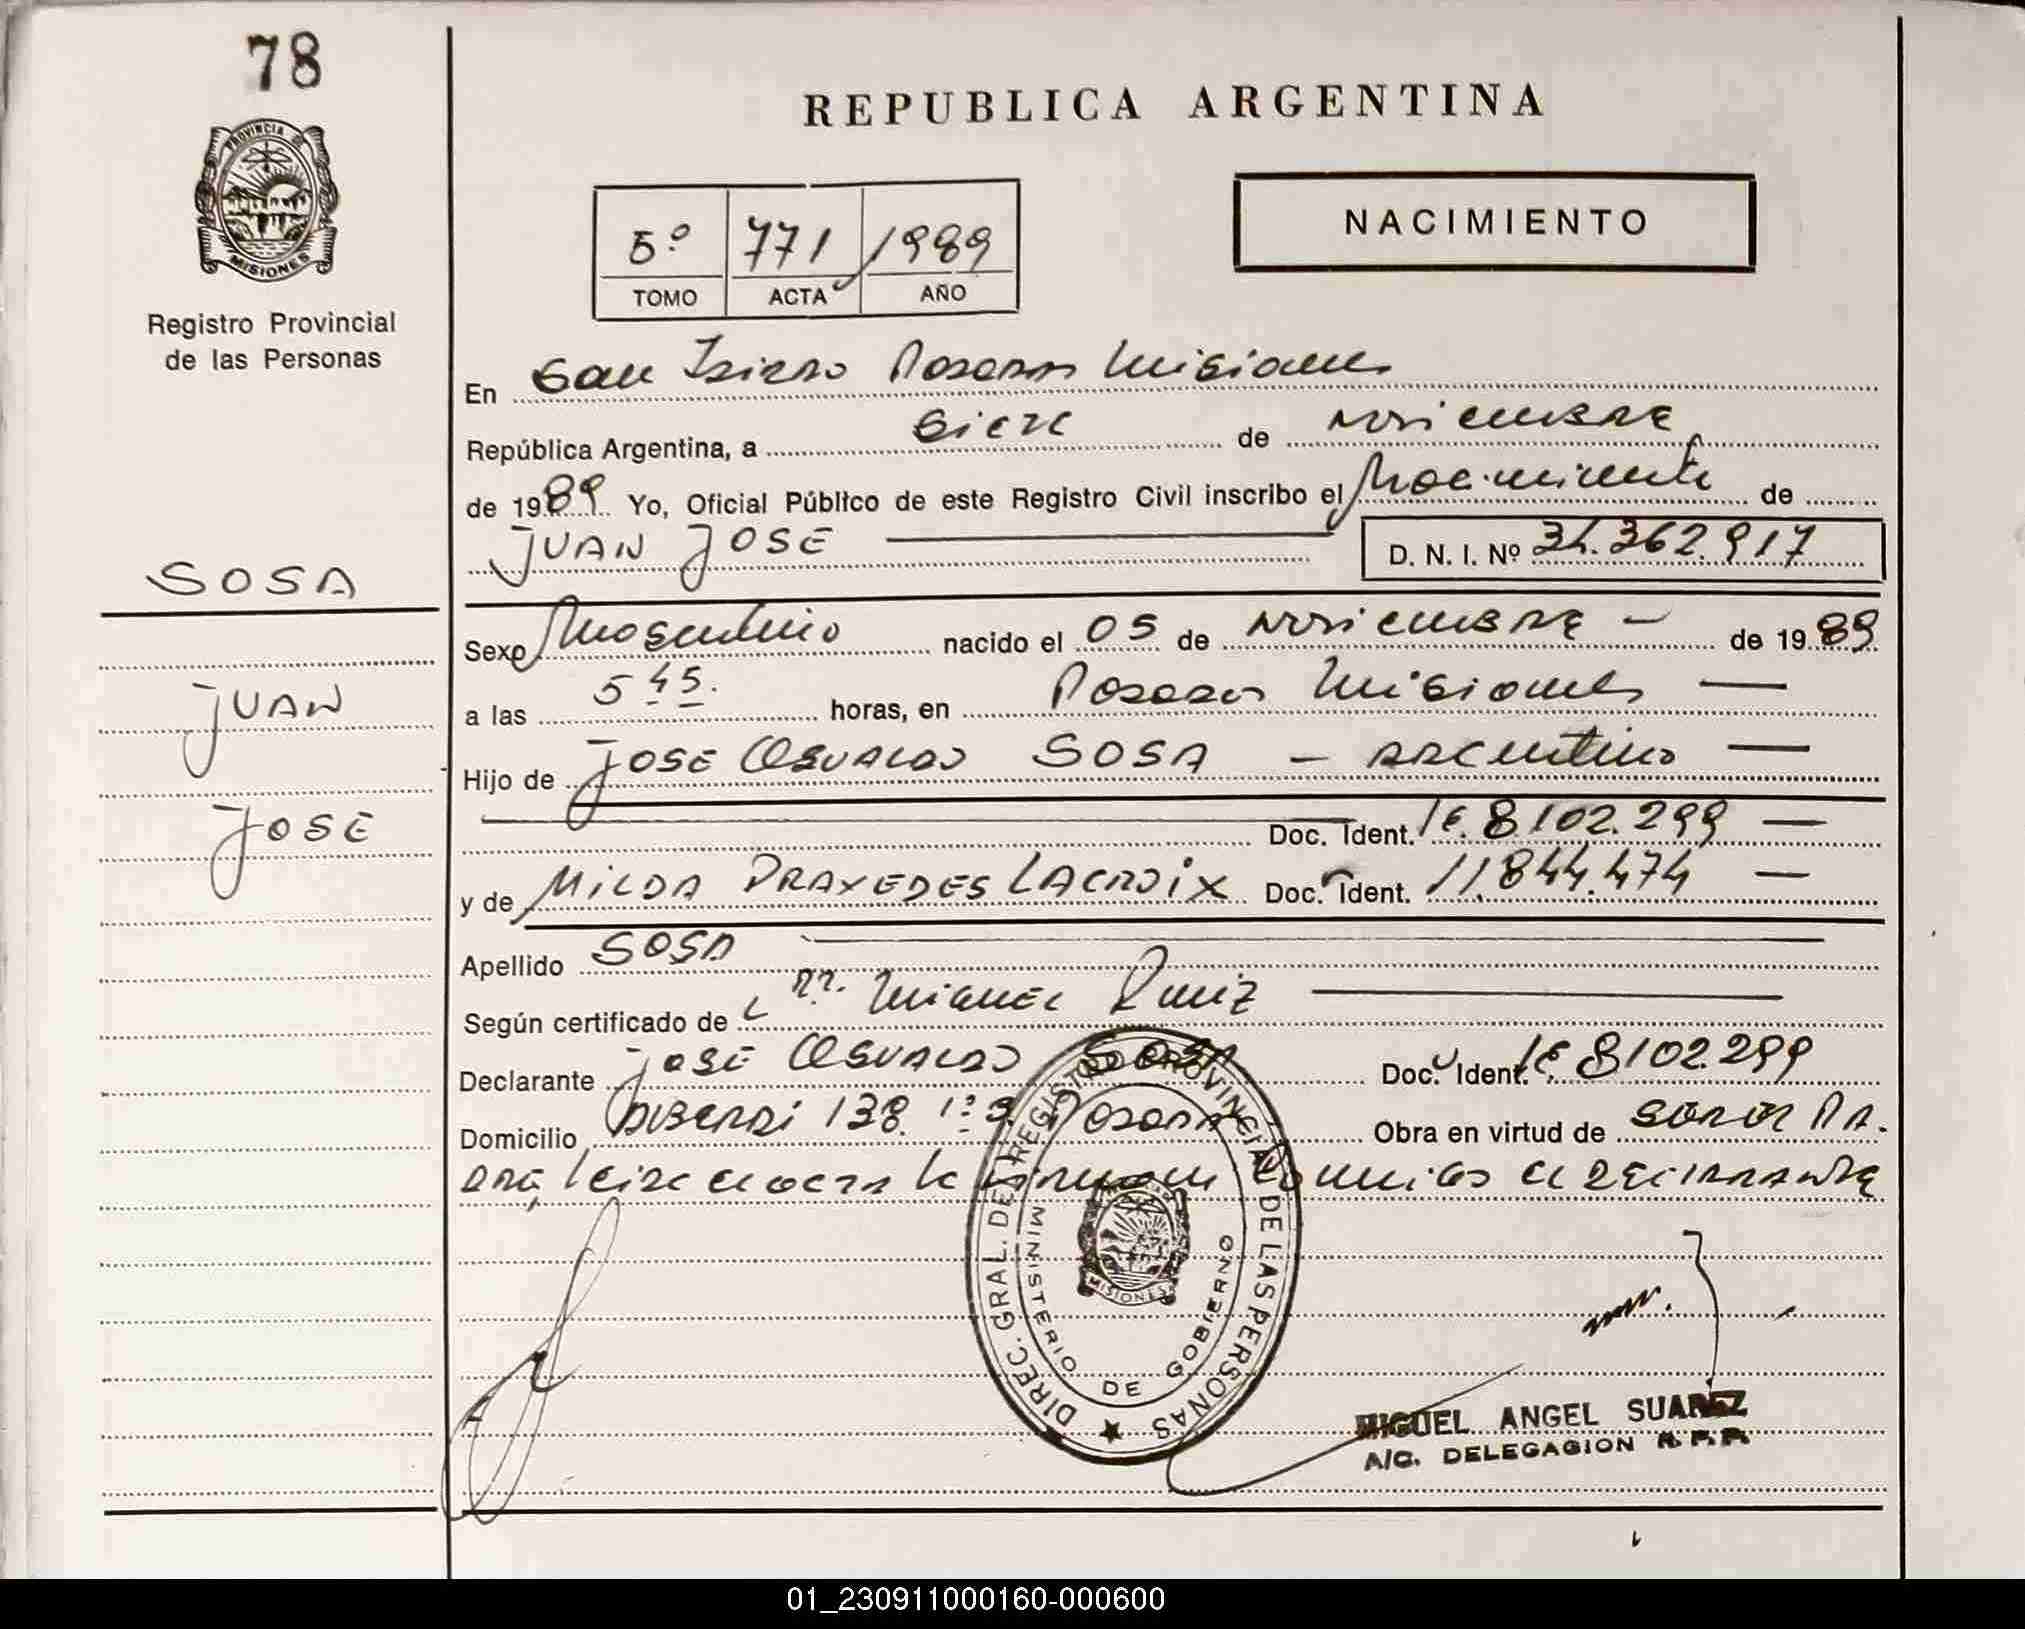 78
REPUBLICA ARGENTINA
PROVINCIA DE
MISIONES
Registro Provincial
de las Personas
5º 771 1989
TOMO ACTA AÑO
NACIMIENTO
En San Isidro Posadas Misiones
República Argentina, a siete de noviembre
de 1989 Yo, Oficial Público de este Registro Civil inscribo el Nacimiento de
JUAN JOSE D. N. I. Nº 34.362.917
SOSA
JUAN
JOSE
Sexo Masculino nacido el 05 de noviembre de 1989
a las 5 45. horas, en Posadas Misiones
Hijo de JOSE OSVALDO SOSA - Argentino
Doc. Ident. LE. 8102.299
y de MILDA PRAXEDES LACROIX Doc. Ident. 11.844.474
Apellido SOSA
Según certificado de Dr. Miguel Ruiz
Declarante JOSE OSVALDO SOSA Doc. Ident. LE 8102.299
Domicilio 138 Posadas Obra en virtud de ser el PA.
DRE, leida el acta la firman conmigo el DECLARANTE
DIREC. GRAL. DEL REGISTRO PROVINCIAL DE LAS PERSONAS
MINISTERIO DE GOBIERNO
MISIONES
MIGUEL ANGEL SUAREZ
A/C. DELEGACION R.P.P.
01_230911000160-000600